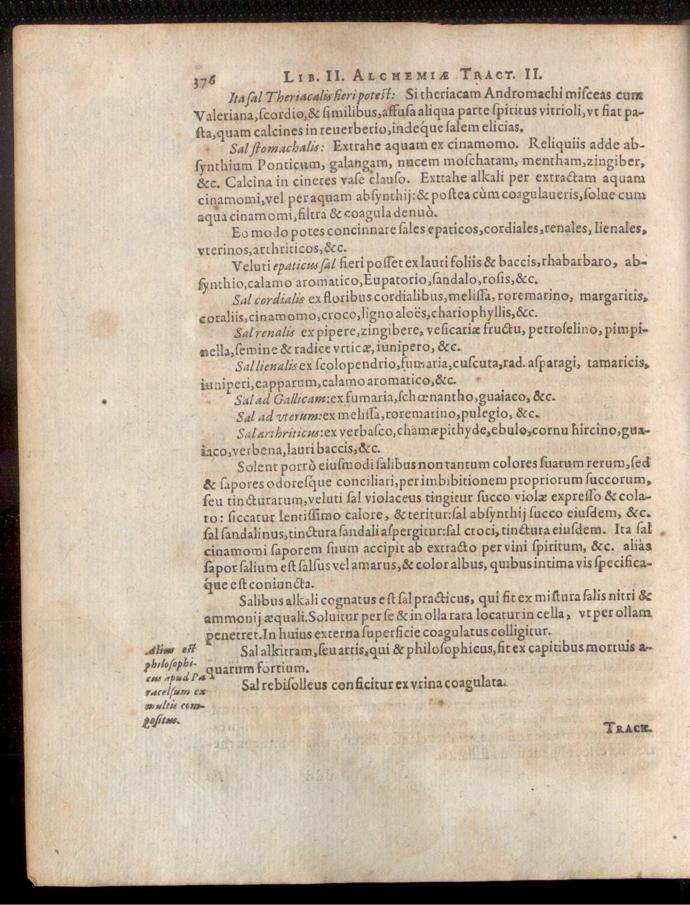 376 LIB. II. ALCHEMIÆ TRACT. II.
Ita sal Theriacalis fieri potest: Si theriacam Andromachi misceas cum
Valeriana, scordio, & similibus, affusa aliqua parte spiritus vitrioli, vt fiat pa-
sta, quam calcines in reuerberio, indeque salem elicias.
Sal stomachalis: Extrahe aquam ex cinamomo. Reliquiis adde ab-
synthium Ponticum, galangam, nucem moschatam, mentham, zingiber,
&c. Calcina in cineres vase clauso. Exttahe alkali per extractam aquam
cinamomi, vel per aquam absynthij: & postea cùm coagulaueris, solue cum
aqua cinamomi, filtra & coagula denuò.
Eo modo potes concinnare sales epaticos, cordiales, renales, lienales,
vterinos, arthriticos, &c.
Veluti epaticus sal fieri posset ex lauri foliis & baccis, rhabarbaro, ab-
synthio, calamo aromatico, Eupatorio, sandalo, rosis, &c.
Sal cordialis ex floribus cordialibus, melissa, roremarino, margaritis,
coraliis, cinamomo, croco, ligno aloës, chariophyllis, &c.
Sal renalis ex pipere, zingibere, vesicariæ fructu, petroselino, pimpi-
nella, semine & radice vrticæ, iunipero, &c.
Sal lienalis ex scolopendrio, fumaria, cuscuta, rad. asparagi, tamaricis,
iuniperi, capparum, calamo aromatico, &c.
Sal ad Gallicam: ex fumaria, schœnantho, guaiaco, &c.
Sal ad vterum: ex melissa, roremarino, pulegio, &c.
Sal arthriticus: ex verbasco, chamæpithyde, ebulo, cornu hircino, gua-
iaco, verbena, lauri baccis, &c.
Solent porrò eiusmodi salibus non tantum colores suarum rerum, sed
& sapores odoresque conciliari, per imbibitionem propriorum succorum,
seu tincturarum, veluti sal violaceus tingitur succo violæ expresso & cola-
to: siccatur lentissimo calore, & teritur: sal absynthij succo eiusdem, &c.
sal sandalinus, tinctura sandali aspergitur: sal croci, tinctura eiusdem. Ita sal
cinamomi saporem suum accipit ab extracto per vini spiritum, &c. alias
sapor salium est salsus vel amarus, & color albus, quibus intima vis specifica-
que est coniuncta.
Salibus alkali cognatus est sal practicus, qui fit ex mistura salis nitri &
ammonij æquali. Soluitur per se & in olla rara locatur in cella, vt per ollam
penetret. In huius externa superficie coagulatus colligitur.
Sal alkitram, seu artis, qui & philosophicus, fit ex capitibus mortuis a-
quarum fortium.
Sal rebisolleus conficitur ex vrina coagulata.
Alius est
philosophi-
cus apud Pa
racelsum ex
multis com-
positus.
TRACT.